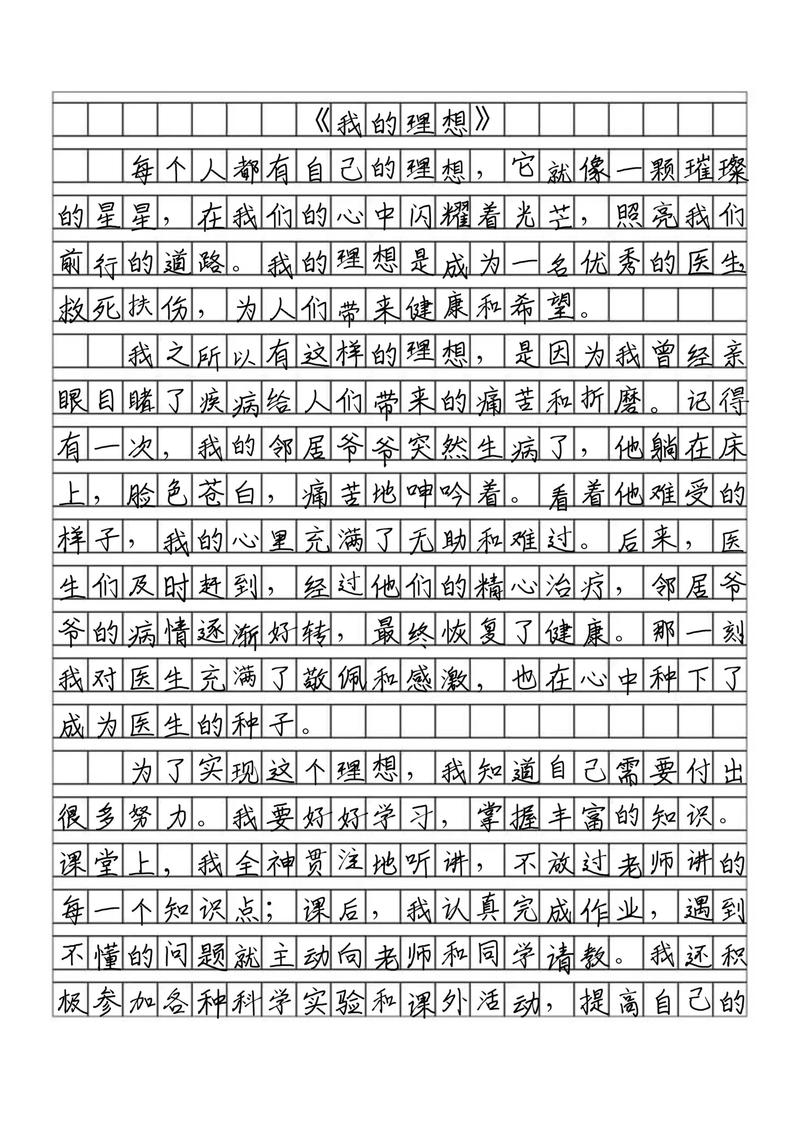 《我的理想》
每个人都有自己的理想，它就像一颗璀璨
的星星，在我们的心中闪耀着光芒，照亮我们
前行的道路。我的理想是成为一名优秀的医生，
救死扶伤，为人们带来健康和希望。
我之所以有这样的理想，是因为我曾经亲
眼目睹了疾病给人们带来的痛苦和折磨。记得
有一次，我的邻居爷爷突然生病了，他躺在床
上，脸色苍白，痛苦地呻吟着。看着他难受的
样子，我的心里充满了无助和难过。后来，医
生们及时赶到，经过他们的精心治疗，邻居爷
爷的病情逐渐好转，最终恢复了健康。那一刻
我对医生充满了敬佩和感激，也在心中种下了
成为医生的种子。
为了实现这个理想，我知道自己需要付出
很多努力。我要好好学习，掌握丰富的知识。
课堂上，我全神贯注地听讲，不放过老师讲的
每一个知识点；课后，我认真完成作业，遇到
不懂的问题就主动向老师和同学请教。我还积
极参加各种科学实验和课外活动，提高自己的